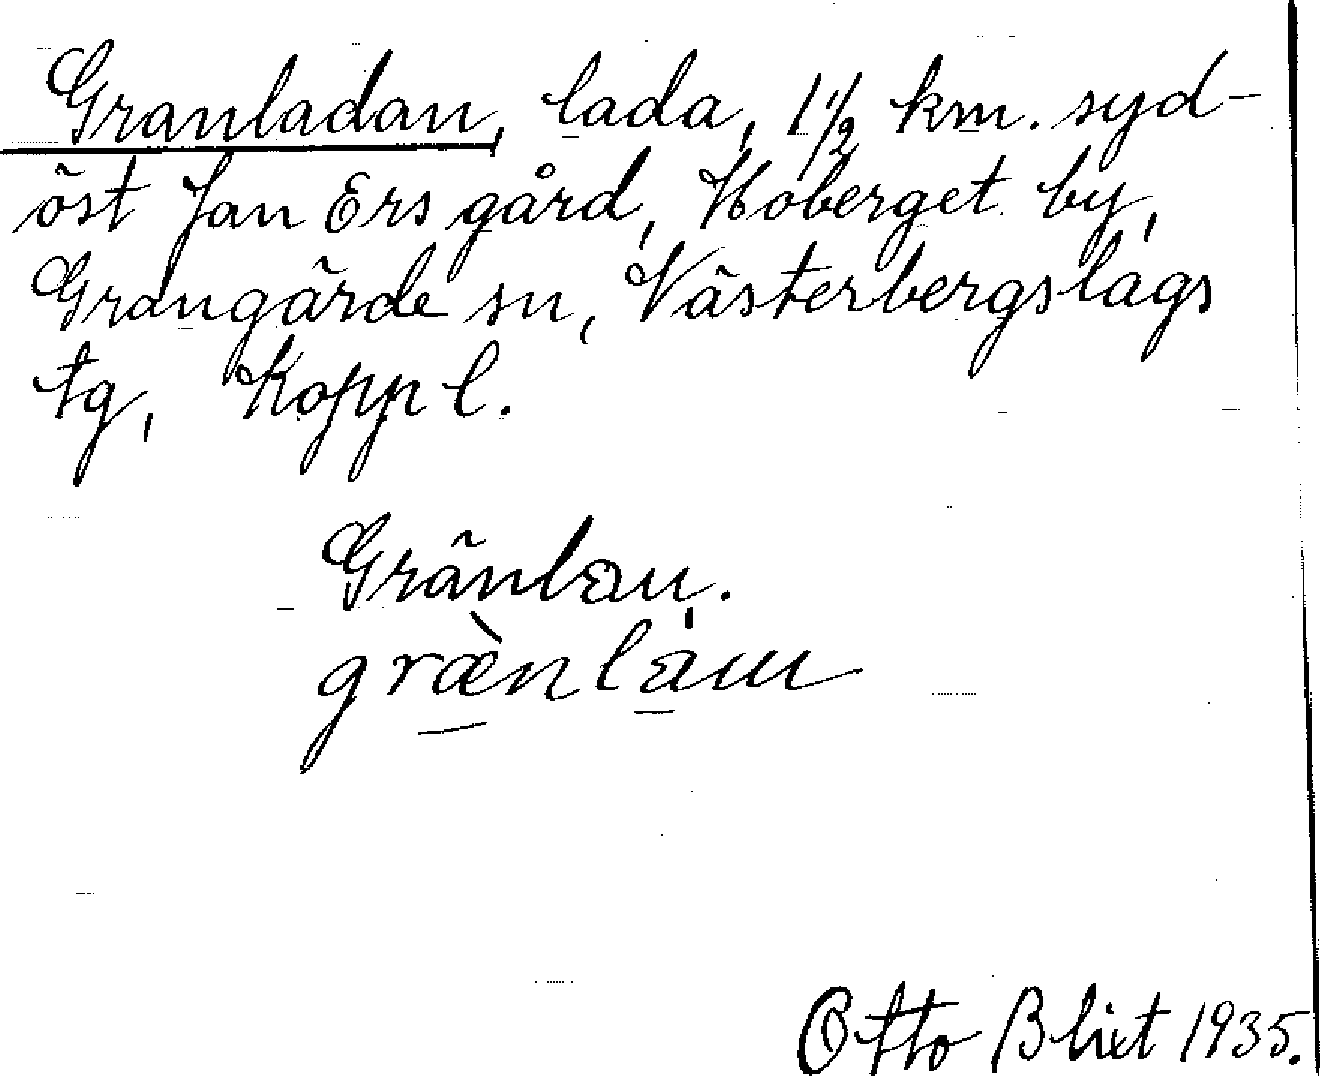 Granladan, lada, 1 1/2 km. syd-
öst Jan Ers gård, Hoberget by,
Grangärde sn, Västerbergslags
tg, Kopp l.
Gränlau.
grænlau
Otto Blixt 1935.